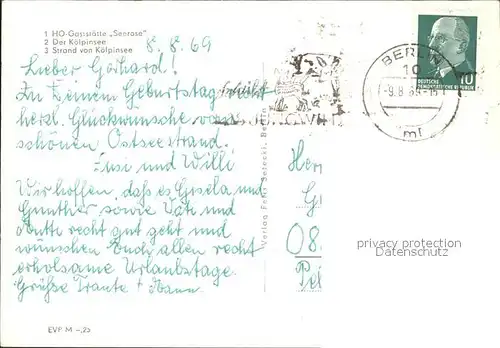 1 HO-Gaststätte „Seerose"
2 Der Kölpinsee
3 Strand von Kölpinsee
8. 8. 69
Lieber Gerhard!
Zu Deinem Geburtstag recht
herzl. Glückwünsche vom
schönen Ostseestrand.
und Willi
Wir hoffen, daß es Gisela und
Gunther sowie Vati und
Mutti recht gut geht und
wünschen Euch allen recht
erholsame Urlaubstage.
Grüße Traute +
EVP M -,25
Verlag Felix Setecki, Be
BERLIN
10
-9.8.69-
mf
DEUTSCHE
DEMOKRATISCHE REPUBLIK
10
Her
G
O8
privacy protection
Datenschutz